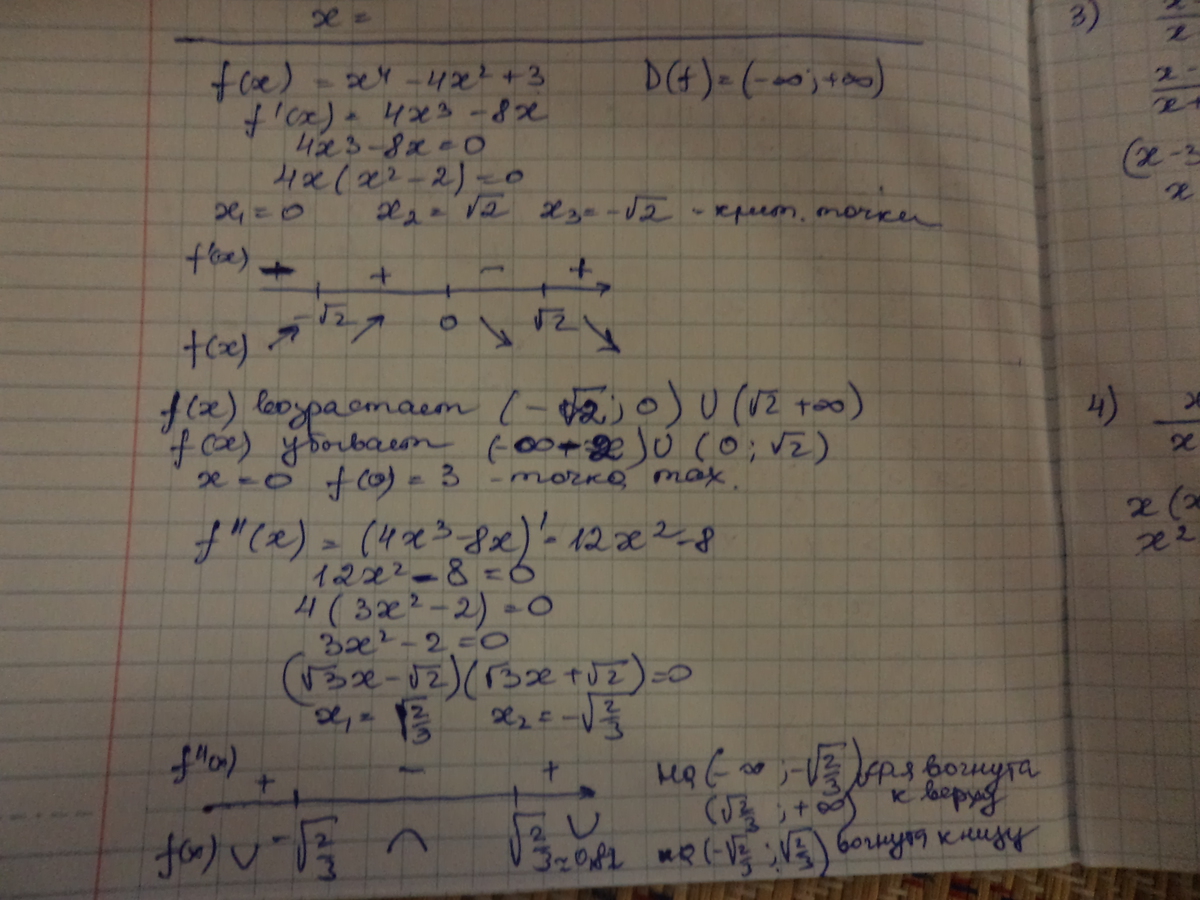 x =
f(x) = x⁴ - 4x² + 3 D(f) = (-∞; +∞)
f'(x) = 4x³ - 8x
4x³ - 8x = 0
4x(x² - 2) = 0
x₁ = 0 x₂ = √2 x₃ = -√2 - крит. точки
f'(x) + - +
-√2 0 √2
f(x) ↗ ↗ ↘ ↘
f(x) возрастает (-√2; 0) ∪ (√2 +∞)
f(x) убывает (-∞ ) ∪ (0; √2)
x = 0 f(0) = 3 - точка max.
f''(x) = (4x³ - 8x)' = 12x² - 8
12x² - 8 = 0
4(3x² - 2) = 0
3x² - 2 = 0
(√3x - √2)(√3x + √2) = 0
x₁ = √(2/3) x₂ = -√(2/3)
f''(x) + - +
f(x) ∪ -√(2/3) ∩ √(2/3) ≈ 0,82 ∪
на (-∞; -√(2/3)) вогнута
(√(2/3); +∞) к верху
на (-√(2/3); √(2/3)) вогнута к низу
3) x -
x
x -
x +
(x - 2
x
4) x
x
x(x
x²